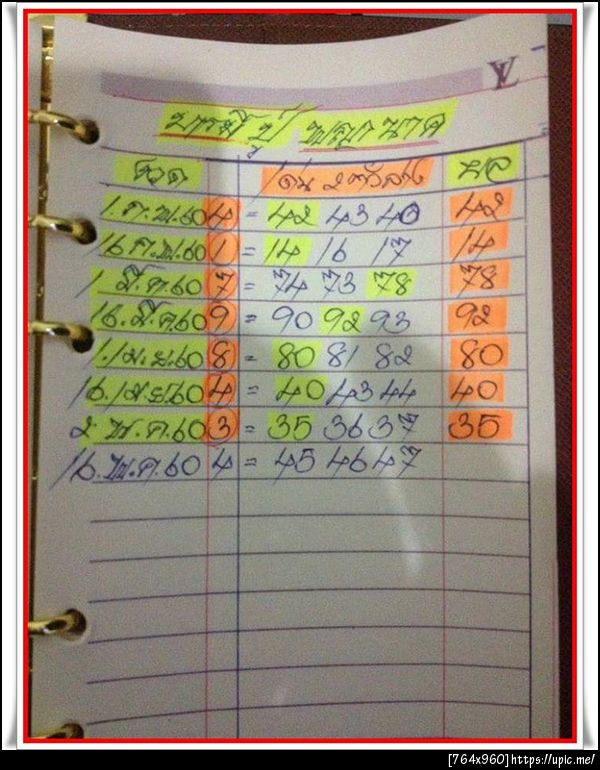 LV
บารมี ปู่ พญานาค
งวด เด่น 2 ตัวล่าง ผล
1.ก.พ.60 4 = 42 43 40 42
16.ก.พ.60 1 = 14 16 17 14
1.มี.ค.60 7 = 74 73 78 78
16.มี.ค.60 9 = 90 92 93 92
1.เม.ย.60 8 = 80 81 82 80
16.เม.ย.60 4 = 40 43 44 40
2.พ.ค.60 3 = 35 36 37 35
16.พ.ค.60 4 = 45 46 47
[764x960]https://upic.me/